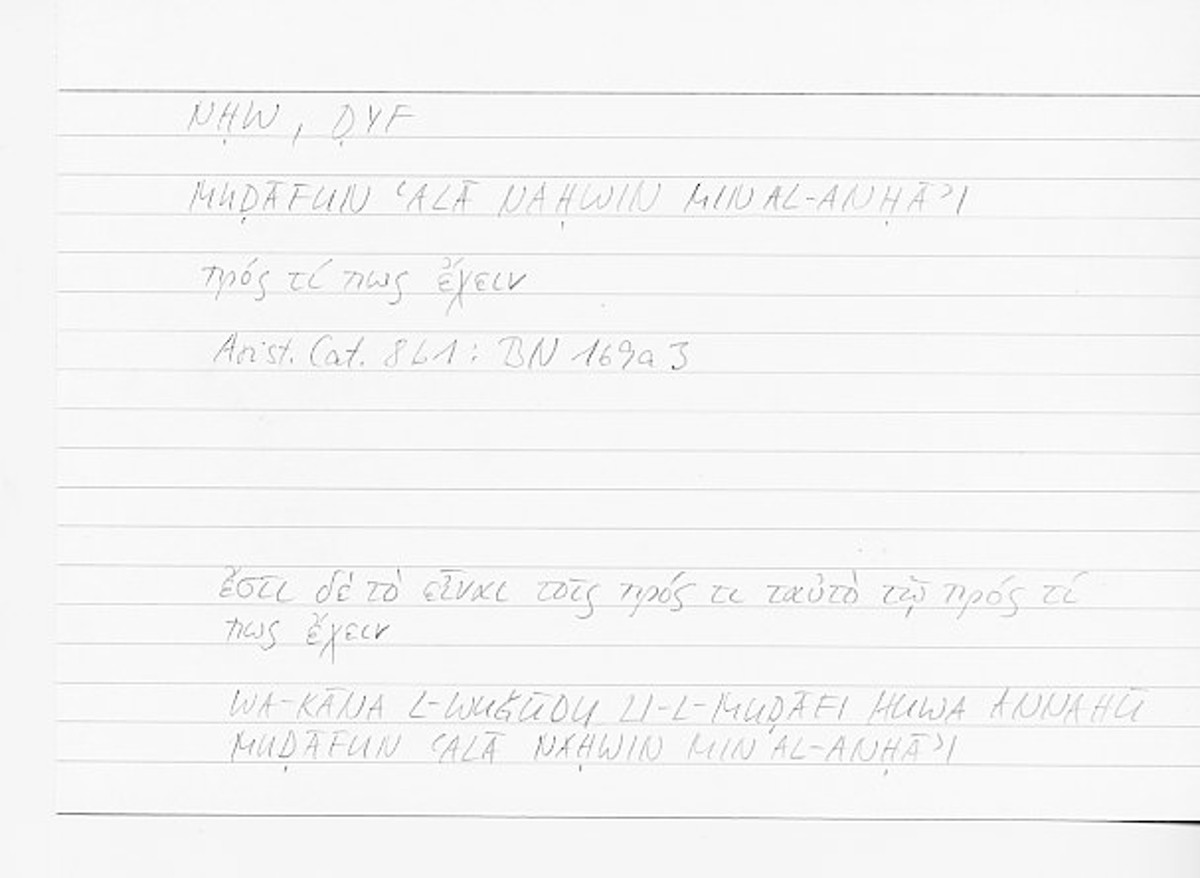 NḤW, ḌYF
MUḌĀFUN ʿALĀ NAḤWIN MIN AL-ANḤĀʾI
πρός τί πως ἔχειν
Arist. Cat. 8b1: BN 169a3
ἔστι δὲ τὸ εἶναι τοῖς πρός τι ταὐτὸ τῷ πρός τί
πως ἔχειν
WA-KĀNA L-WUǦŪDU LI-L-MUḌĀFI HUWA ANNAHŪ
MUḌĀFUN ʿALĀ NAḤWIN MIN AL-ANḤĀʾI